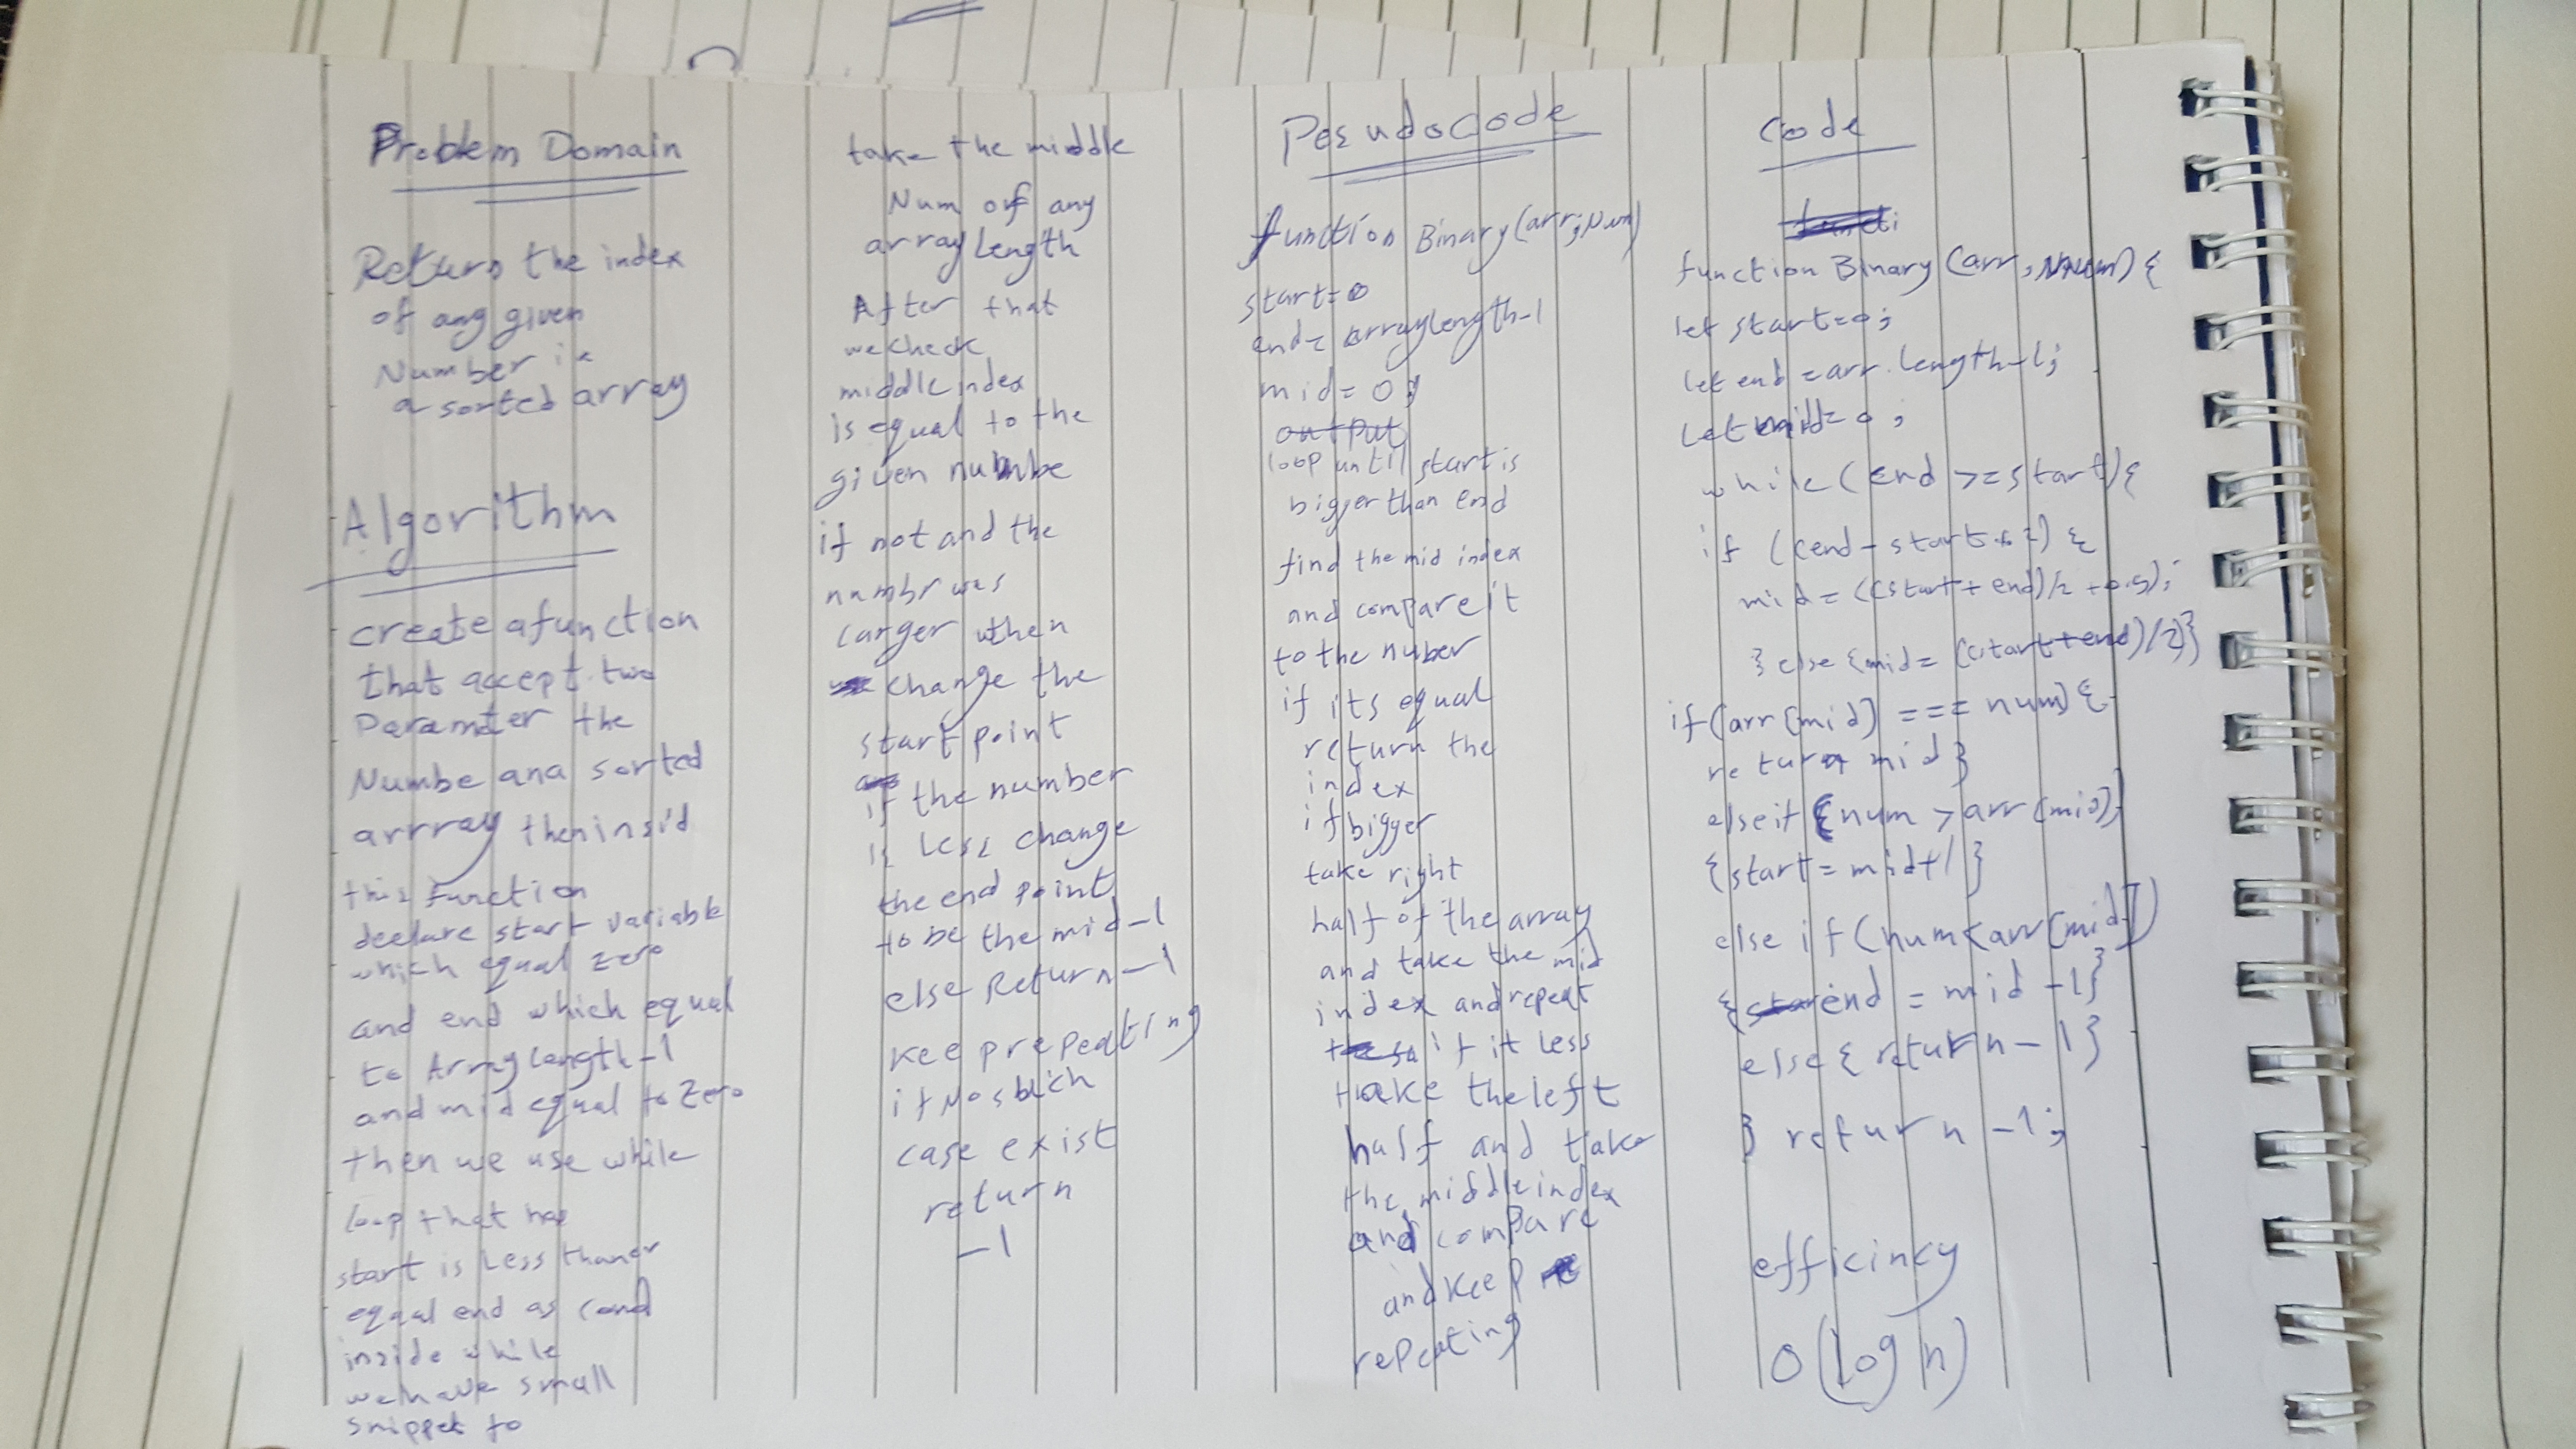 Problem Domain
Return the index
of any given
Number in
a sorted array
Algorithm
create a function
that accept two
Paramter the
Numbe and sorted
array then insid
this function
declare start variable
which equal zero
and end which equal
to Arraylangth-1
and mid equal to zero
then we use while
loop that has
start is less than or
equal end as cond
inside while
we have small
snippet to
take the middle
Num of any
array length
After that
we check
middle index
is equal to the
given numbe
if not and the
numbr was
larger when
change the
start point
if the number
is less change
the end point
to be the mid-1
else return -1
keep prepeating
if No such
case exist
return
-1
PesudoCode
function Binary(arr,Num)
start=0
end= arraylength-1
mid=0
loop until start is
bigger than end
find the mid index
and compare it
to the number
if its equal
return the
index
if bigger
take right
half of the array
and take the mid
index and repeat
if it less
take the left
half and take
the middle index
and compare
and keep
repeating
Code
function Binary(arr,Num){
let start=0;
let end=arr.length-1;
let mid=0;
while(end>=start){
if((end-start%2){
mid=((start+end)/2+0.5);
}else{mid=(start+end)/2)}
if(arr[mid]===num){
return mid}
elseif(num>arr[mid])
{start=mid+1}
else if(num<arr[mid])
{end=mid+1}
else{return-1}
} return -1;
efficinky
O(log n)